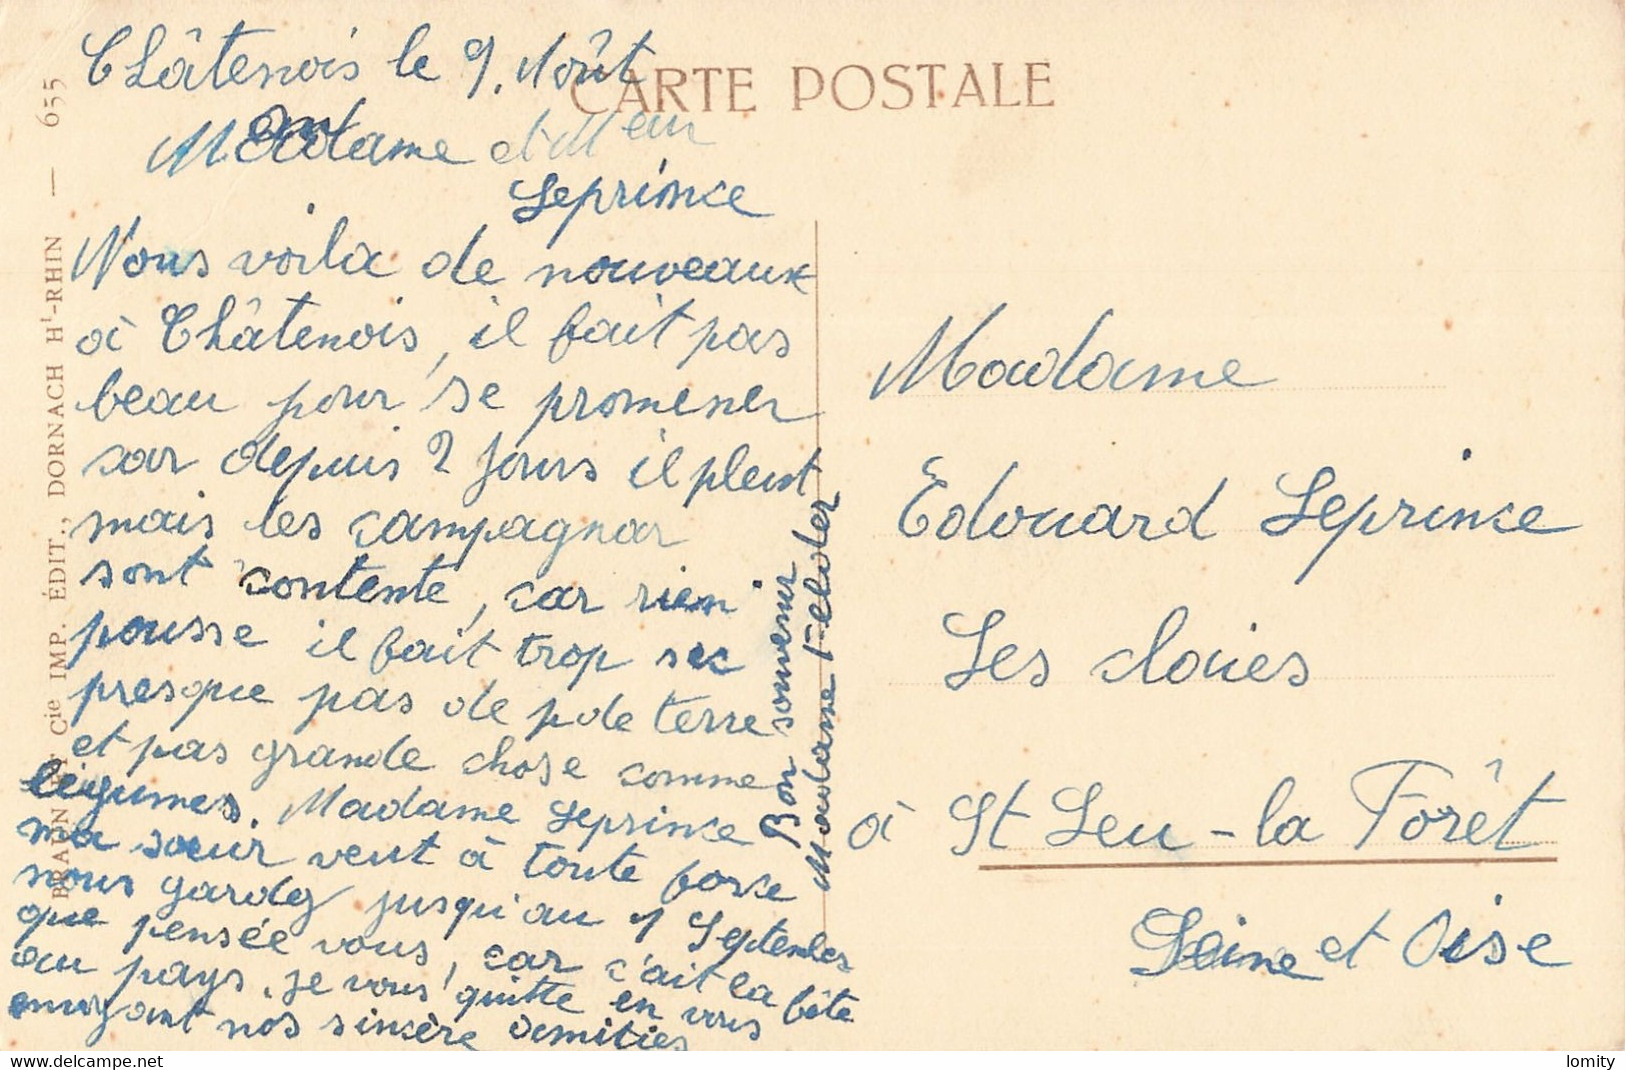 CARTE POSTALE
Châtenois le 9. Août
Madame et Mr
Leprince
Nous voila de nouveaux
à Châtenois, il fait pas
beau pour se promener
car depuis 2 jours il pleut
mais les campagnar
sont contente, car rien
pousse il fait trop sec
presque pas de p de terre
et pas grande chose comme
légumes. Madame Leprince
ma sœur veut à toute force
nous gardez jusqu'au 1 September
que pensée vous, car c'ait la fête
au pays. je vous quitte en vous
envoyant nos sincère amitiés
Bon souvenir
Madame Felder
Madame
Edouard Leprince
Les cloies
à St Leu - la Forêt
Seine et Oise
BRAUN ET Cie IMP. ÉDIT., DORNACH Ht-RHIN — 655
www.delcampe.net
lomity